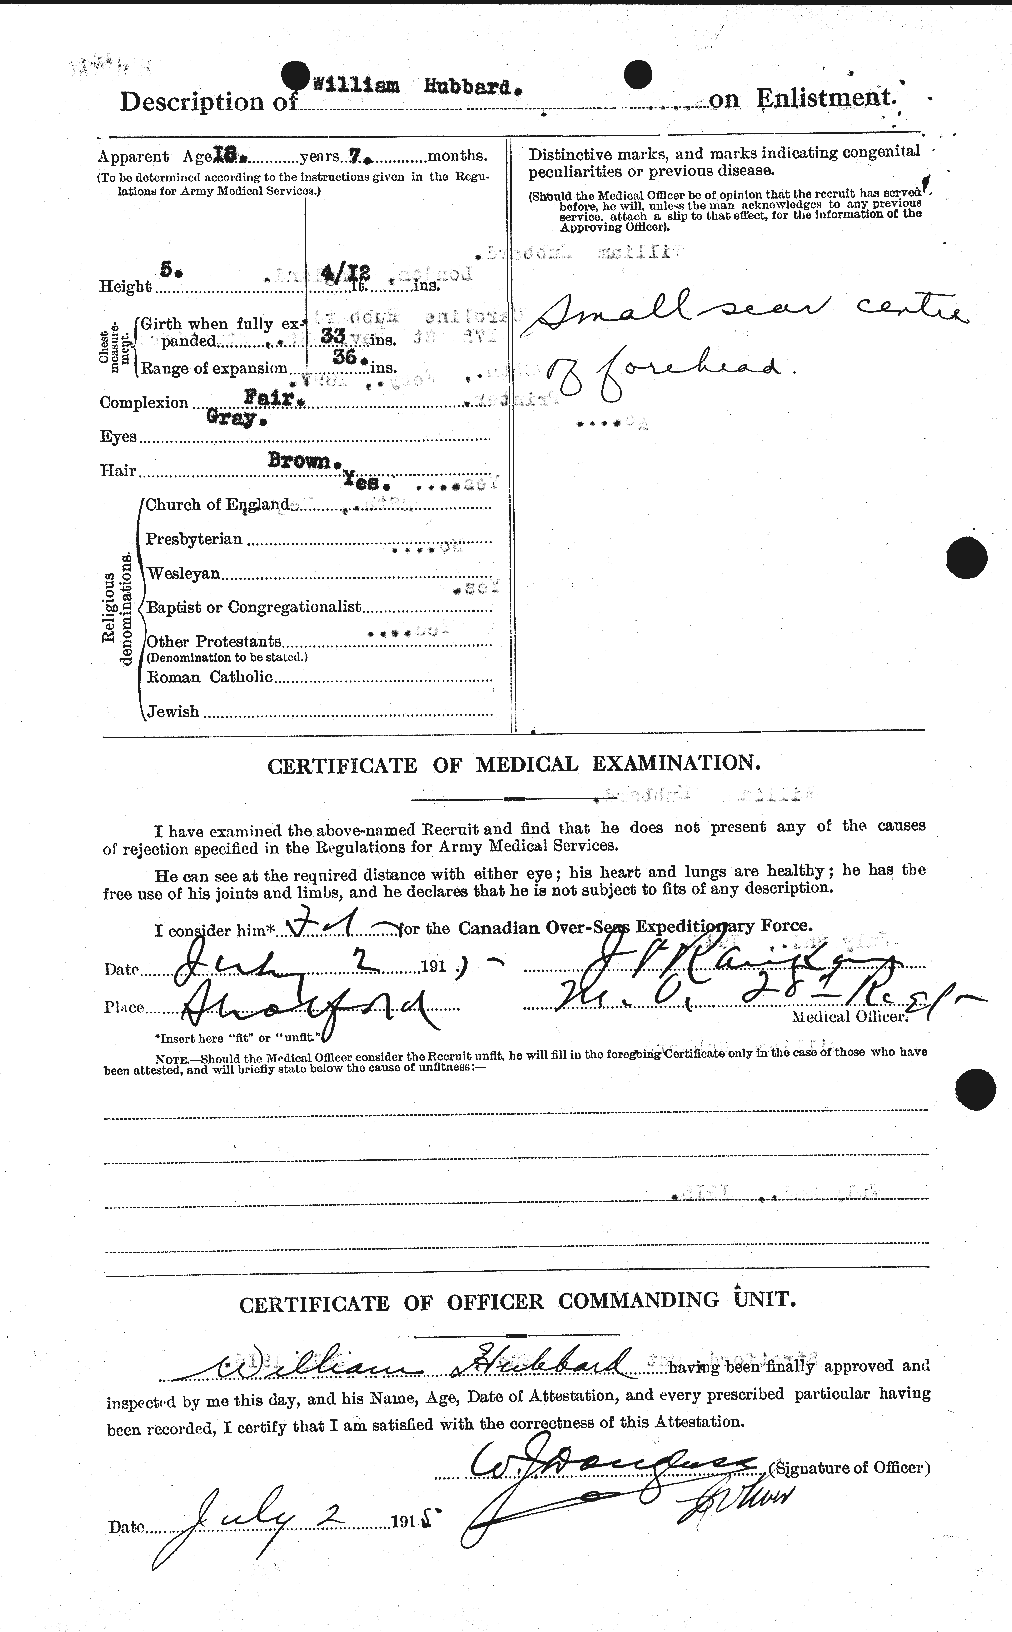 William Hubbard.
Description of on Enlistment.
Apparent Age 18. years 7. months.
(To be determined according to the instructions given in the Regu-
lations for Army Medical Services.)
Height 5. ft. 4/12 ins.
Chest measure-ment.
Girth when fully ex-
panded 33 ins.
Range of expansion 36. ins.
Complexion Fair.
Eyes Gray.
Hair Brown.
Religious denominations.
Church of England Yes.
Presbyterian
Wesleyan
Baptist or Congregationalist
Other Protestants
(Denomination to be stated.)
Roman Catholic
Jewish
Distinctive marks, and marks indicating congenital
peculiarities or previous disease.
(Should the Medical Officer be of opinion that the recruit has served
before, he will, unless the man acknowledges to any previous
service, attach a slip to that effect, for the information of the
Approving Officer).
Small scar centre
of forehead.
CERTIFICATE OF MEDICAL EXAMINATION.
I have examined the above-named Recruit and find that he does not present any of the causes
of rejection specified in the Regulations for Army Medical Services.
He can see at the required distance with either eye; his heart and lungs are healthy; he has the
free use of his joints and limbs, and he declares that he is not subject to fits of any description.
I consider him* Fit for the Canadian Over-Seas Expeditionary Force.
Date July 2 191
Place
M.O. 28th Regt
Medical Officer.
*Insert here "fit" or "unfit."
NOTE.—Should the Medical Officer consider the Recruit unfit, he will fill in the foregoing Certificate only in the case of those who have
been attested, and will briefly state below the cause of unfitness:—
CERTIFICATE OF OFFICER COMMANDING UNIT.
William Hubbard having been finally approved and
inspected by me this day, and his Name, Age, Date of Attestation, and every prescribed particular having
been recorded, I certify that I am satisfied with the correctness of this Attestation.
(Signature of Officer)
Date July 2 1915